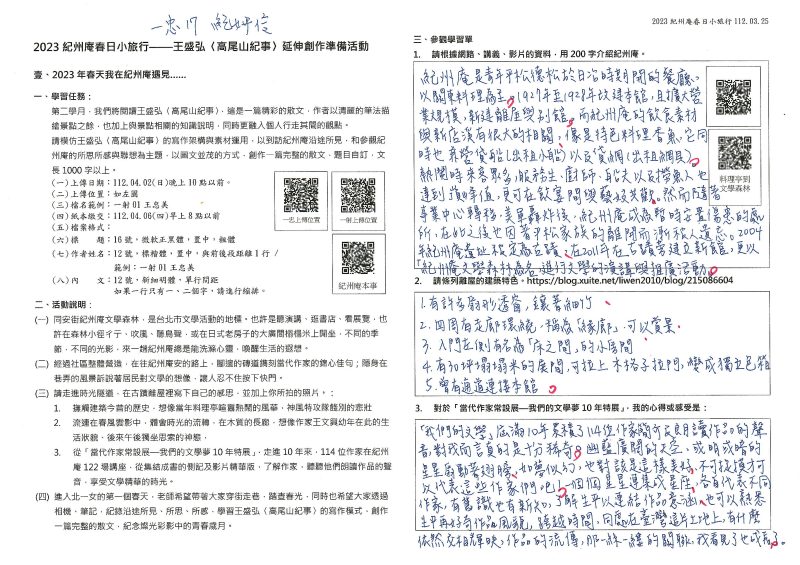 一忠17 紀妤信
2023 紀州庵春日小旅行——王盛弘〈高尾山紀事〉延伸創作準備活動
壹、2023 年春天我在紀州庵遇見……
一、學習任務：
第二學月，我們將閱讀王盛弘〈高尾山紀事〉，這是一篇精彩的散文，作者以清麗的筆法描
繪景點之餘，也加上與景點相關的知識說明，同時更融入個人行走其間的觀點。
請模仿王盛弘〈高尾山紀事〉的寫作架構與素材運用，以到訪紀州庵沿途所見，和參觀紀
州庵的所思所感與聯想為主題，以圖文並茂的方式，創作一篇完整的散文，題目自訂，文
長 1000 字以上。
(一) 上傳日期：112.04.02(日)晚上 10 點以前。
(二) 上傳位置：如左圖
(三) 檔名範例：一射 01 王忠美
(四) 紙本繳交：112.04.06(四)早上 8 點以前
(五) 檔案格式：
(六) 標　　題：16 號，微軟正黑體，置中，粗體
(七) 作者姓名：12 號，標楷體，置中，與前後段距離 1 行 /
範例：一射 01 王忠美
(八) 內　　文：12 號，新細明體，單行間距
如果一行只有一、二個字，請進行縮排。
一忠上傳位置
一射上傳位置
紀州庵本事
二、活動說明：
(一) 同安街紀州庵文學森林，是台北市文學活動的地標。也許是聽演講、逛書店、看展覽，也
許在森林小徑彳亍、吹風、聽鳥聲，或在日式老房子的大廣間榻榻米上開坐，不同的季
節，不同的光影，來一趟紀州庵總是能洗滌心靈，喚醒生活的遐想。
(二) 經過社區整體營造，在往紀州庵安的路上，腳邊的磚道鐫刻當代作家的錦心佳句；隱身在
巷弄的風景訴說著居民對文學的想像，讓人忍不住按下快門。
(三) 請走進時光隧道，在古蹟離屋裡寫下自己的感思，並加上你所拍的照片，：
1. 撫觸建築今昔的歷史，想像當年料理亭喧囂熱鬧的風華，神風特攻隊餞別的悲壯
2. 流連在春風雲影中，體會時光的流轉，在木質的長廊，想像作家王文興幼年在此的生
活狀貌，後來午後獨坐思索的神態，
3. 從「當代作家常設展—我們的文學夢 10 年特展」，走進 10 年來，114 位作家在紀州
庵 122 場講座，從集結成書的側記及影片精華版，了解作家，聽聽他們朗讀作品的聲
音，享受文學精華的時光。
(四) 進入北一女的第一個春天，老師希望帶著大家穿街走巷，踏查春光，同時也希望大家透過
相機、筆記，紀錄沿途所見、所思、所感，學習王盛弘〈高尾山紀事〉的寫作模式，創作
一篇完整的散文，紀念燦光彩影中的青春歲月。
2023 紀州庵春日小旅行 112.03.25
三、參觀學習單
1. 請根據網路、講義、影片的資料，用 200 字介紹紀州庵。
紀州庵是青年平松德松於日治時期開的餐廳。
以關東料理為主。1927年至1928年改建本館，且擴大營
業規模，新建離屋與別館。而紀州庵的飲食素材
與新店溪有很大的相關，像是特色料理香魚，它同
時也兼營貸船(出租小船)以及貸網(出租網具)。
熱鬧時來客眾多，服務生、廚師、船夫以及撈魚人也
達到顛峰值，更可在飲宴間與藝妓共歡。然而隨著
事業中心轉移，美軍轟炸後，紀州庵成為暫時容置傷患的處
所，在此之後也因著平松家族的離開而漸被人遺忘。2004
年紀州庵遺址被定為古蹟；在2011年在古蹟旁建立新館，更以
「紀州庵文學森林」為名，進行文學的演講與推廣活動。
料理亭到
文學森林
2. 請條列離屋的建築特色。https://blog.xuite.net/liwen2010/blog/215086604
1. 有許多扇形透窗，鑲著細竹
2. 四周有走廊環繞，稱為「緣廊」，可以賞景
3. 入門左側有名為「床之間」的小房間
4. 有30坪榻榻米的廣間，可拉上木格子拉門，變成獨立包箱
5. 曾有通道連接本館
3. 對於「當代作家常設展—我們的文學夢 10 年特展」，我的心得或感受是：
「我們的文學」，佈滿10年累積了114位作家簡介及朗讀作品的聲
音，對我而言真的是十分稀奇。幽藍廣闊的天空，或明或暗的
星星扇動著翅膀，如夢似幻，也對該是這樣美好，不可揆度才可
以代表這些作家們吧！一個個星星連成星座，各自代表不同
作家，有舊識也有新知，了解生平以連結作品意涵，也可以熟悉
生平再好奇作品風貌，跨越時間，同處在臺灣這片土地上，有什麼
依然交相輝映，作品的流傳，那一絲一縷的關聯，我看見了也成為了。